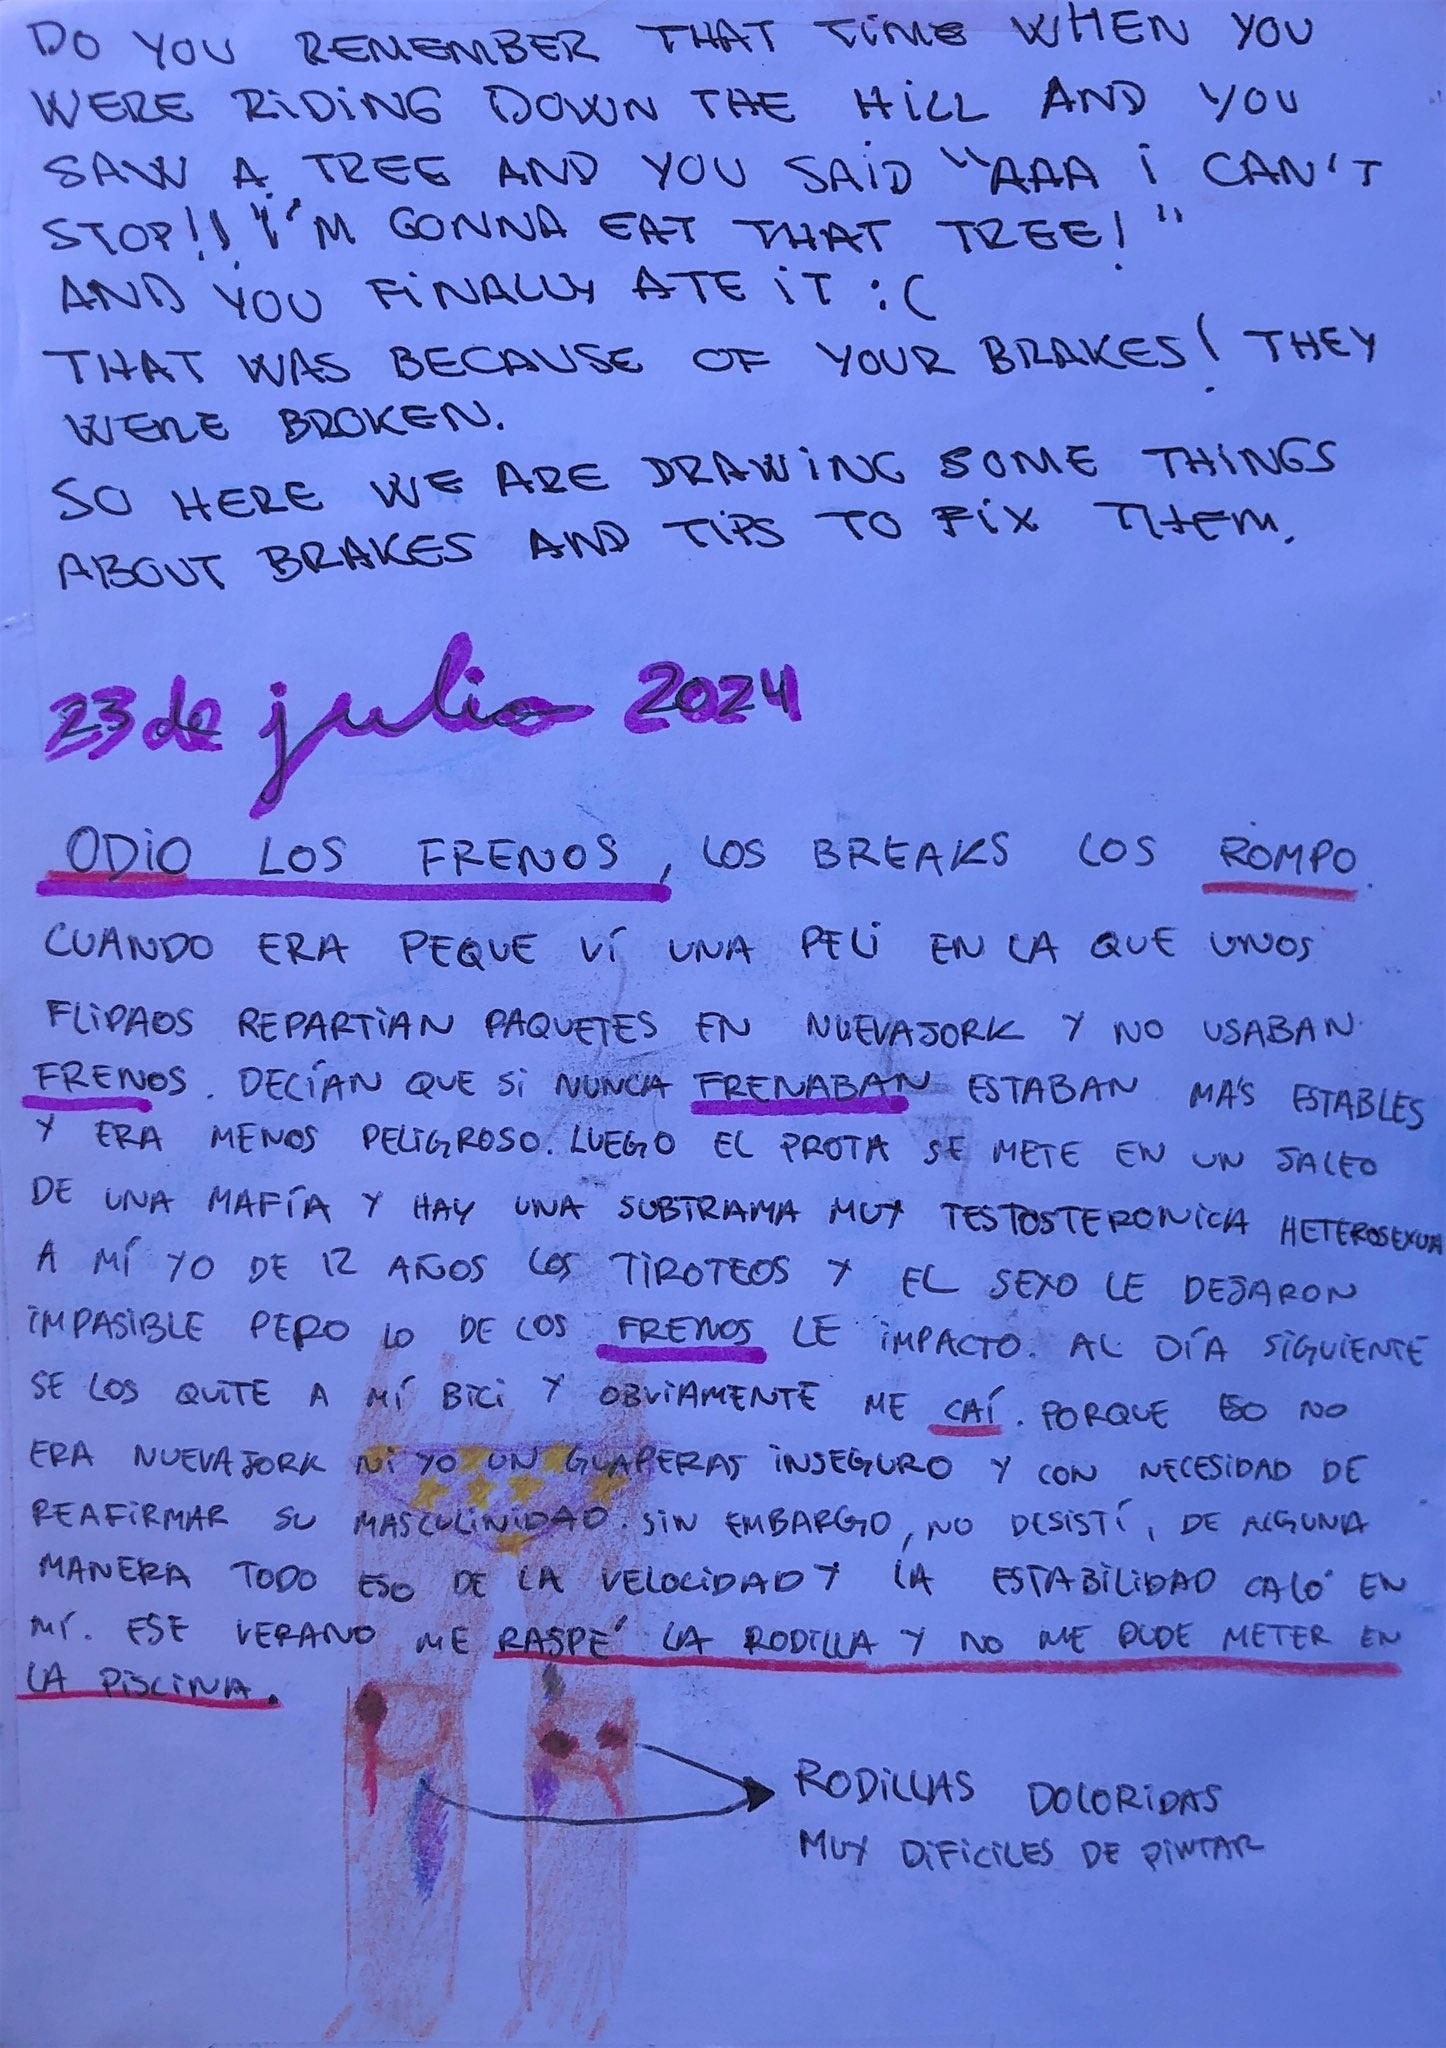 DO YOU REMEMBER THAT TIME WHEN YOU
WERE RIDING DOWN THE HILL AND YOU
SAW A TREE AND YOU SAID "AAA I CAN'T
STOP!! I'M GONNA EAT THAT TREE!"
AND YOU FINALLY ATE IT :(
THAT WAS BECAUSE OF YOUR BRAKES! THEY
WERE BROKEN.
SO HERE WE ARE DRAWING SOME THINGS
ABOUT BRAKES AND TIPS TO FIX THEM.
23 de julio 2024
ODIO LOS FRENOS, LOS BREAKS LOS ROMPO.
CUANDO ERA PEQUE VÍ UNA PELI EN LA QUE UNOS
FLIPAOS REPARTIAN PAQUETES EN NUEVAJORK Y NO USABAN
FRENOS. DECÍAN QUE SI NUNCA FRENABAN ESTABAN MÁS ESTABLES
Y ERA MENOS PELIGROSO. LUEGO EL PROTA SE METE EN UN JALEO
DE UNA MAFÍA Y HAY UNA SUBTRAMA MUY TESTOSTERONICA HETEROSEXUA
A MÍ YO DE 12 AÑOS LOS TIROTEOS Y EL SEXO LE DEJARON
IMPASIBLE PERO LO DE LOS FRENOS LE IMPACTO. AL DÍA SIGUIENTE
SE LOS QUITE A MÍ BICI Y OBVIAMENTE ME CAÍ. PORQUE ESO NO
ERA NUEVAJORK NI YO UN GUAPERAS INSEGURO Y CON NECESIDAD DE
REAFIRMAR SU MASCULINIDAD. SIN EMBARGO, NO DESISTÍ, DE ALGUNA
MANERA TODO ESO DE LA VELOCIDAD Y LA ESTABILIDAD CALÓ EN
MÍ. ESE VERANO ME RASPÉ LA RODILLA Y NO ME PUDE METER EN
LA PISCINA.
RODILLAS DOLORIDAS
MUY DIFICILES DE PINTAR